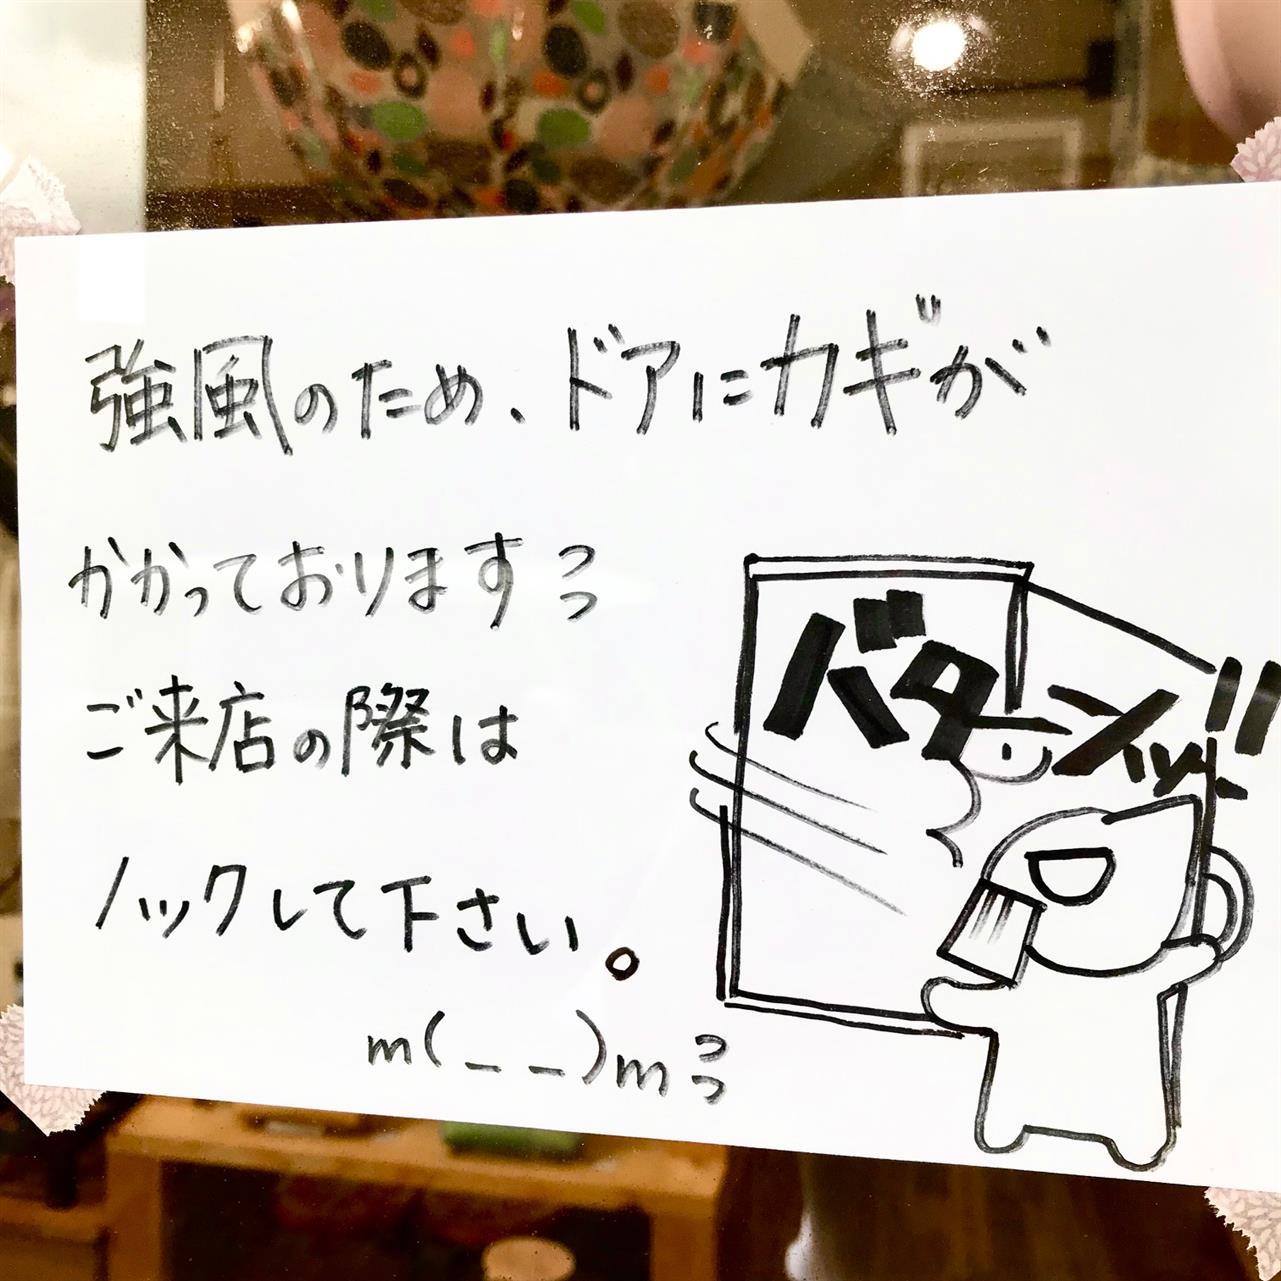 強風のため、ドアにカギが
かかっております
ご来店の際は
ノックして下さい。
m(_ _)m
バターンッ!!